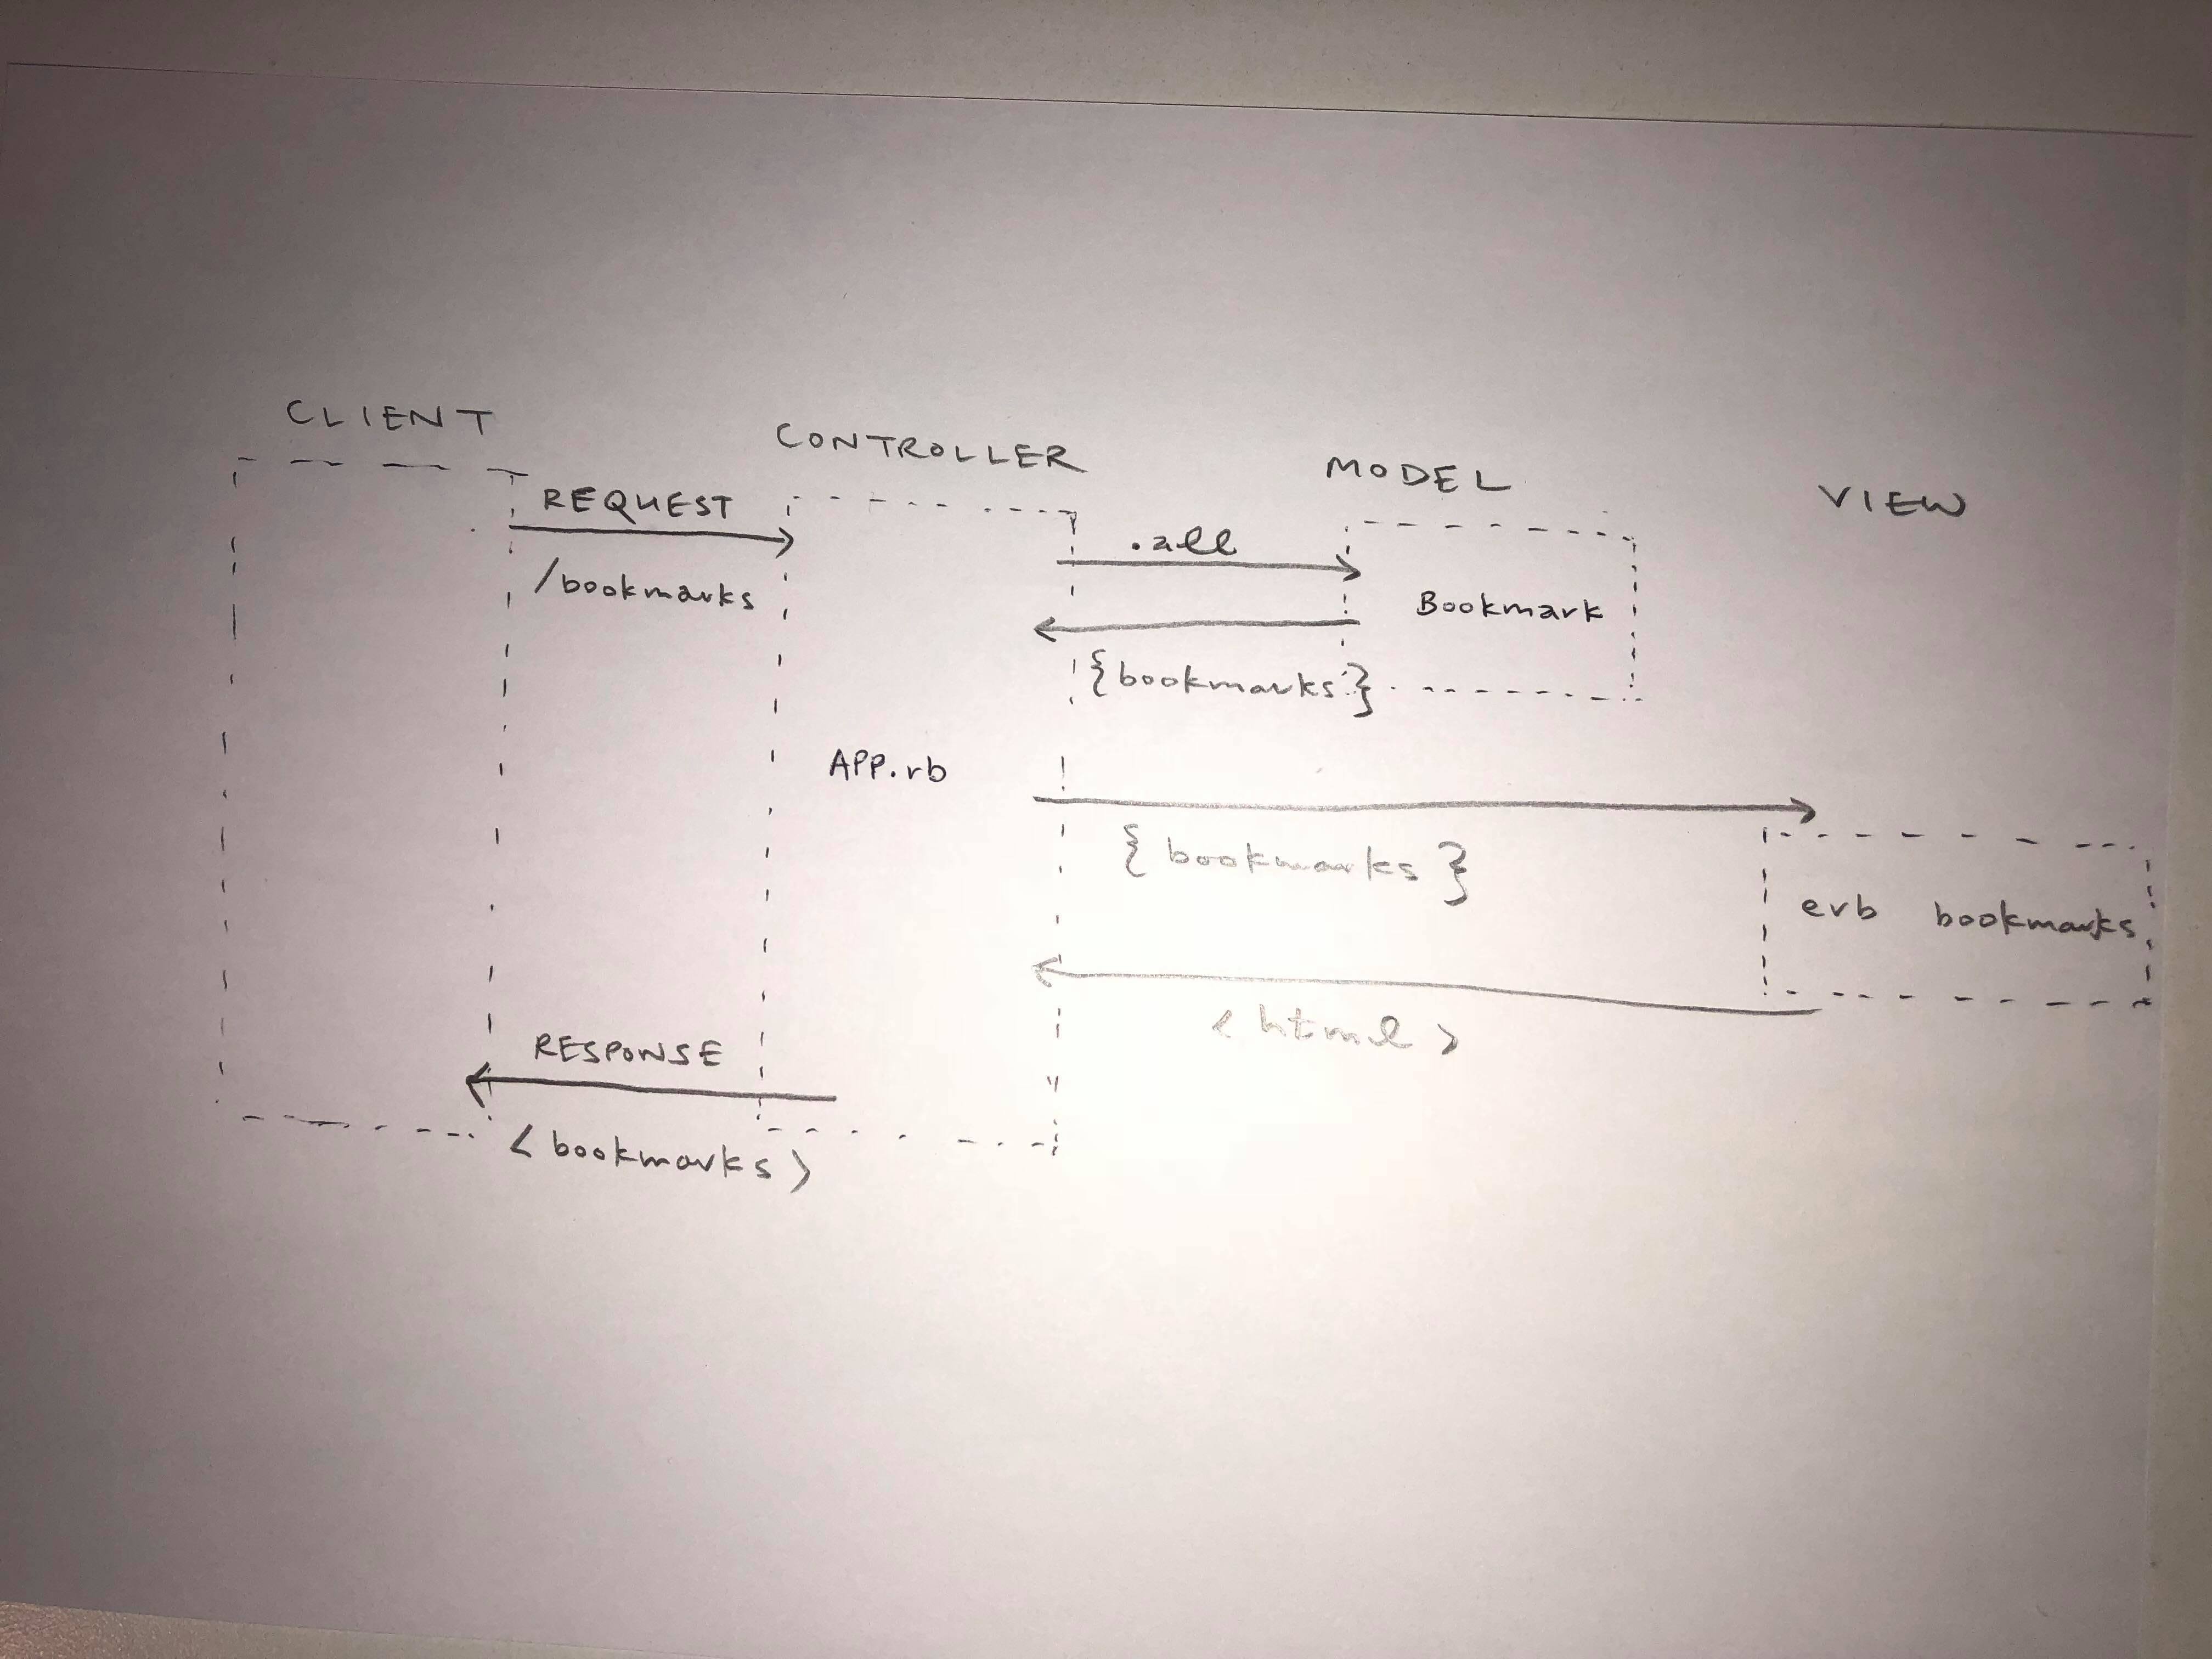 CLIENT
CONTROLLER
MODEL
VIEW
REQUEST
/bookmarks
.all
Bookmark
{bookmarks}
APP.rb
{ bookmarks }
erb bookmarks
< html >
RESPONSE
< bookmarks >